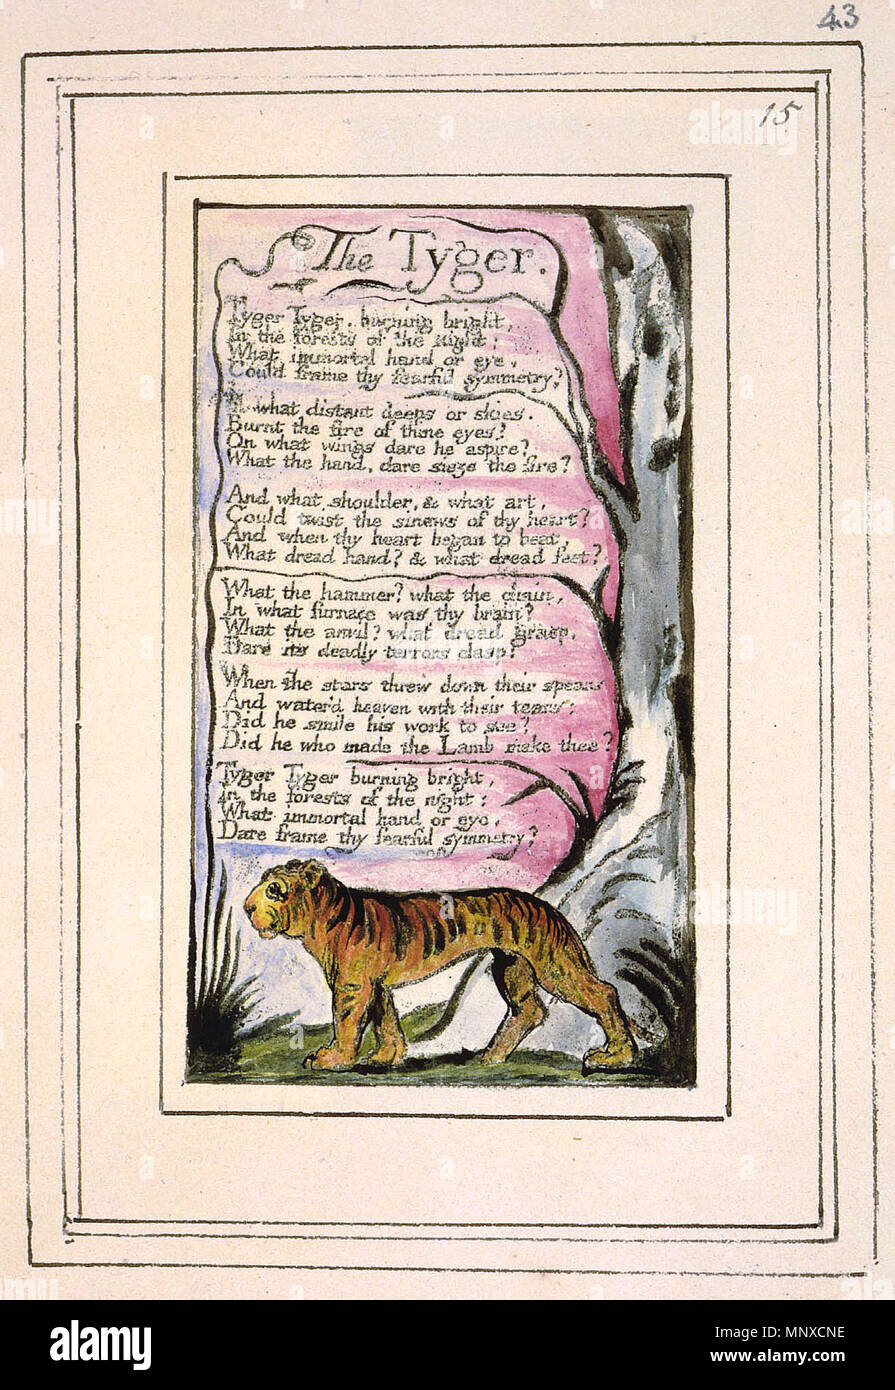 43
15
The Tyger.
Tyger Tyger, burning bright,
In the forests of the night;
What immortal hand or eye,
Could frame thy fearful symmetry?
In what distant deeps or skies.
Burnt the fire of thine eyes?
On what wings dare he aspire?
What the hand, dare sieze the fire?
And what shoulder, & what art,
Could twist the sinews of thy heart?
And when thy heart began to beat,
What dread hand? & what dread feet?
What the hammer? what the chain,
In what furnace was thy brain?
What the anvil? what dread grasp,
Dare its deadly terrors clasp?
When the stars threw down their spears
And water'd heaven with their tears:
Did he smile his work to see?
Did he who made the Lamb make thee?
Tyger Tyger burning bright,
In the forests of the night:
What immortal hand or eye,
Dare frame thy fearful symmetry?
alamy
Image ID: MNXCNE
www.alamy.com